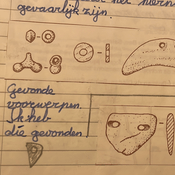 gevaarlijk zijn.
Gevonde
voorwerpen.
Ik heb
die gevonden